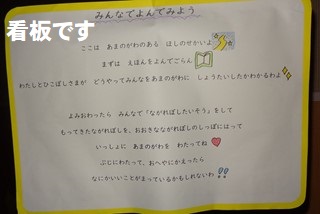 みんなでよんでみよう
看板です
ここは あまのがわのある ほしのせかいよ
まずは えほんをよんでごらん
わたしとひこぼしさまが どうやってみんなをあまのがわに しょうたいしたかわかるわよ
よみおわったら みんなで「ながれぼしたいそう」をして
もってきたながれぼしを、おおきなながれぼしのしっぽにはって
いっしょに あまのがわを わたってね
ぶじにわたって、おへやにかえったら
なにかいいことがまっているかもしれないわ